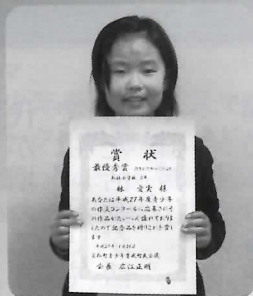 賞状
最優秀賞
林 愛実 様
あなたは平成27年度青少年
の作文コンクールに応募されそ
の作品がたいへん優れておりま
したので記念品を贈りこれを賞し
ます
会長 広江正明